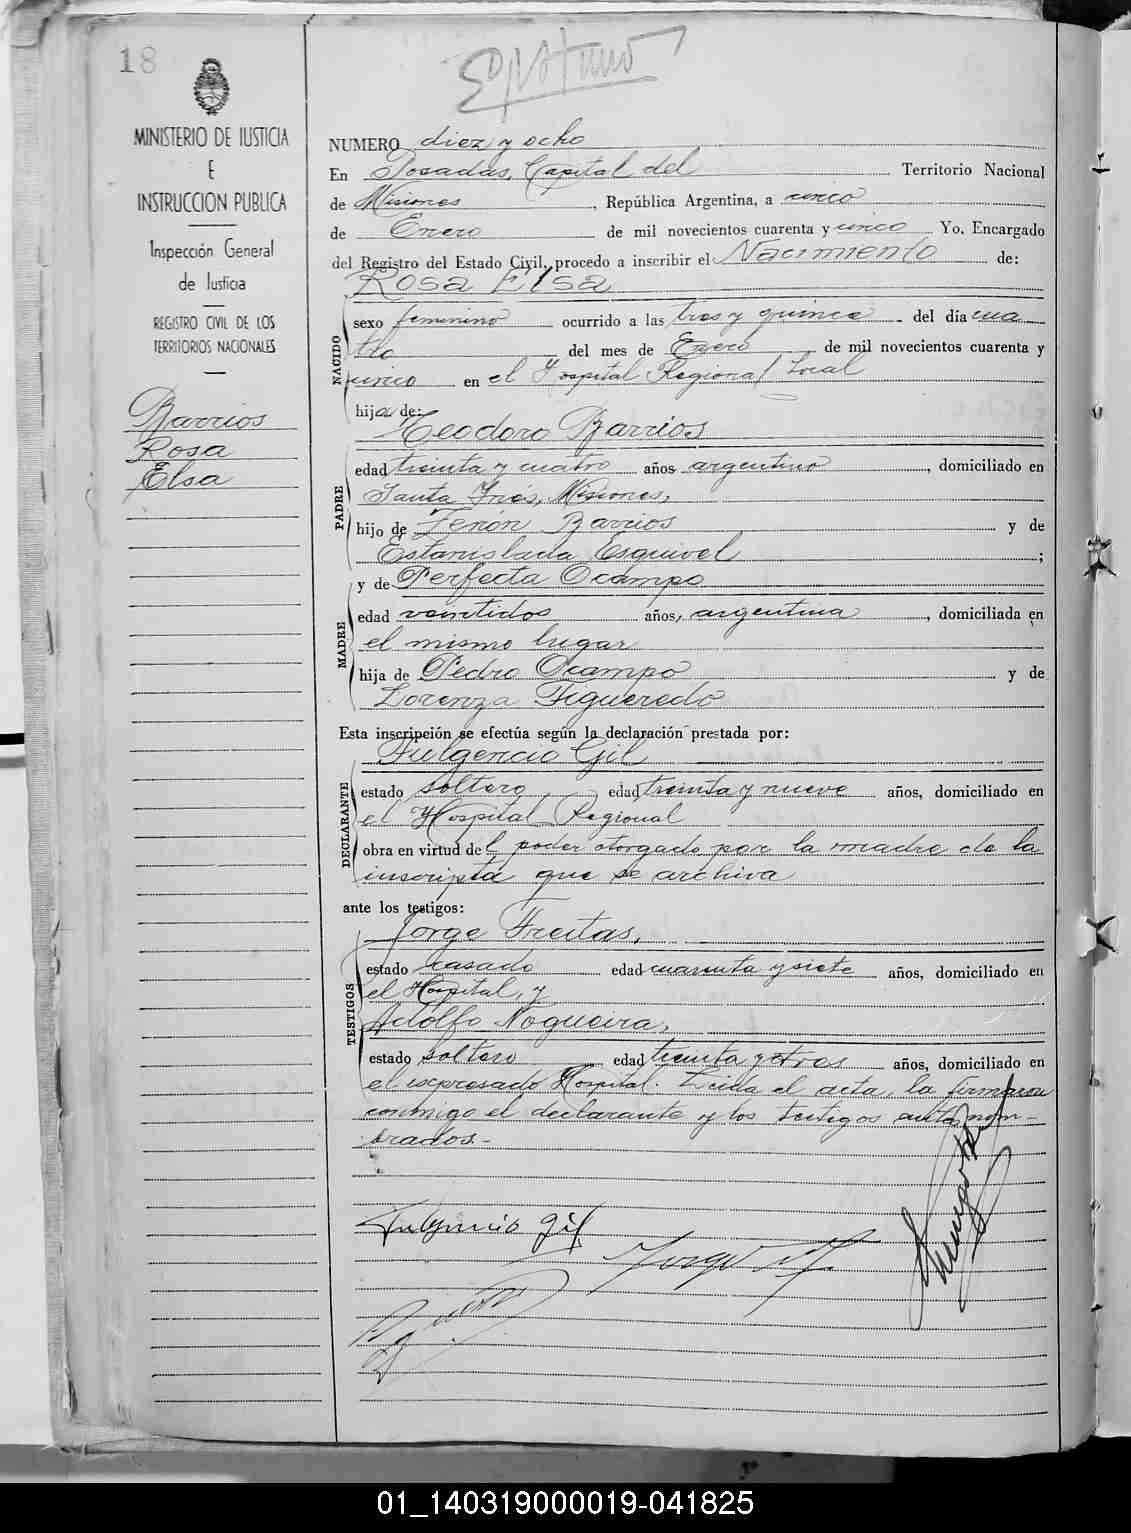 18
MINISTERIO DE JUSTICIA
E
INSTRUCCION PUBLICA
Inspección General
de Justicia
REGISTRO CIVIL DE LOS
TERRITORIOS NACIONALES
Barrios
Rosa
Elsa
NUMERO diez y ocho
En Posadas, Capital del Territorio Nacional
de Misiones, República Argentina, a cinco
de Enero de mil novecientos cuarenta y cinco Yo, Encargado
del Registro del Estado Civil, procedo a inscribir el Nacimiento de:
Rosa Elsa
NACIDO
sexo femenino ocurrido a las tres y quince del día cua
tro del mes de Enero de mil novecientos cuarenta y
cinco en el Hospital Regional Local
hija de:
Teodoro Barrios
PADRE
edad treinta y cuatro años argentino, domiciliado en
Santa Ines, Misiones,
hijo de Zenón Barrios y de
Estanislada Esquivel;
y de Perfecta Ocampo
MADRE
edad veintidos años, argentina, domiciliada en
el mismo lugar
hija de Pedro Ocampo y de
Lorenza Figueredo
Esta inscripción se efectúa según la declaración prestada por:
Fulgencio Gil
DECLARANTE
estado soltero, edad treinta y nueve años, domiciliado en
el Hospital Regional
obra en virtud del poder otorgado por la madre de la
inscripta que se archiva
ante los testigos:
Jorge Freitas,
TESTIGOS
estado casado edad cuarenta y siete años, domiciliado en
el Hospital, y
Adolfo Nogueira,
estado soltero edad treinta y tres años, domiciliado en
el expresado Hospital. Leida el acta, la firmaron
conmigo el declarante y los testigos antes nom-
brados-
Fulgencio Gil
Jorge
01_140319000019-041825